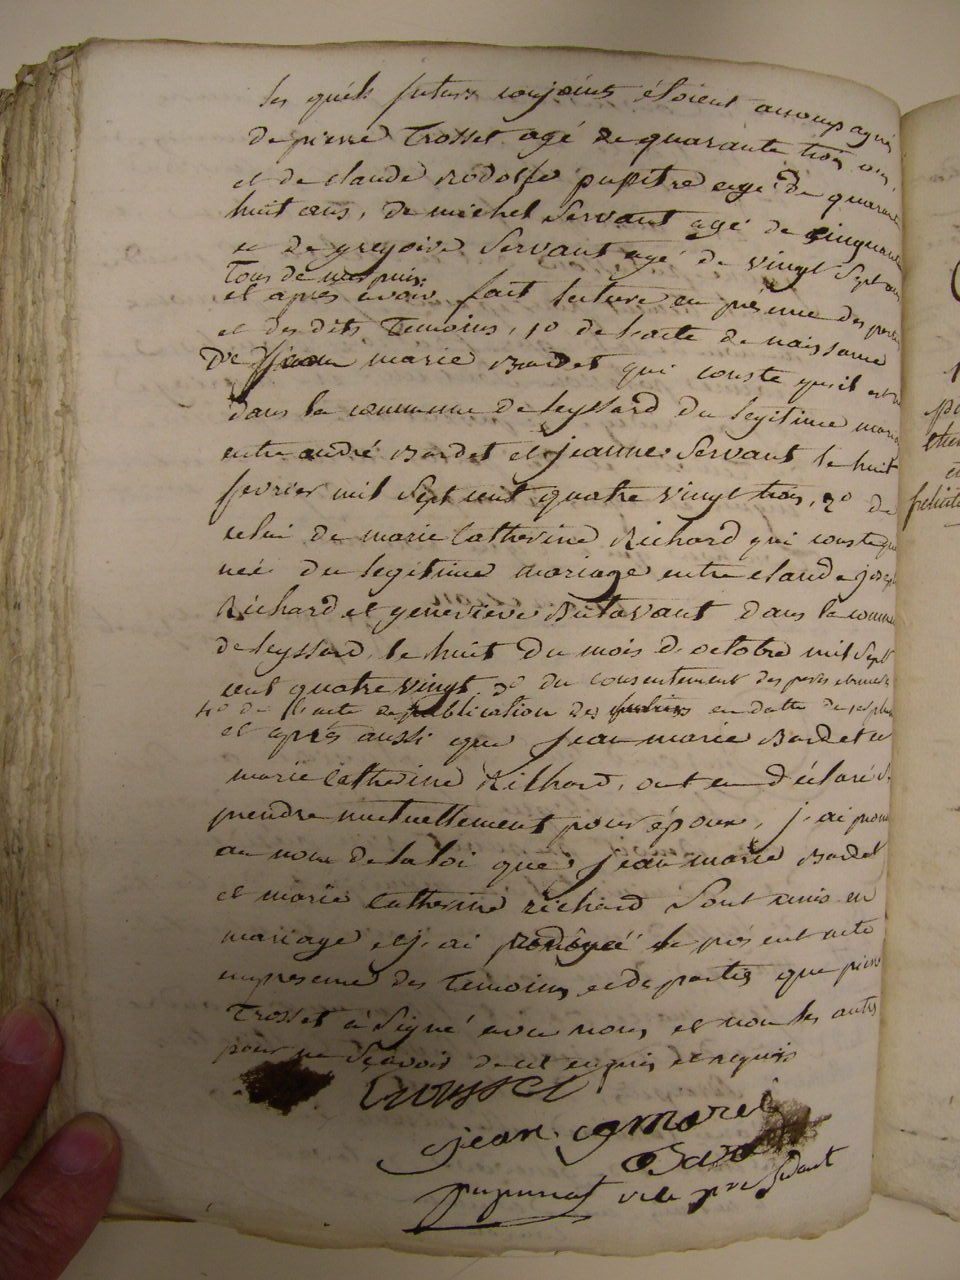 les quels futurs conjoints étoient accompagnés
de pierre Trosset agé de quarante trois ans,
et de claude Rodolfe pupitre agé de quarante
huit ans, de michel Servant agé de cinquante
et de gregoire Servant agé de vingt Sept ans
Tous de
et apres avoir fait lecture en presence des parties
et des dits Temoins, 1º de l'acte de naissance
De Jean marie Bardet qui conste quil est né
dans la commune de Leyssard du legitime mariage
entre andré Bardet et jeanne Servant le huit
fevrier mil Sept cent quatre vingt trois, 2º de
celui de marie Catherine Richard qui conste que
neé du legitime mariage entre claude joseph
Richard et genevieve Butavant dans la commune
de Leyssard, le huit du mois d'octobre mil Sept
cent quatre vingt, 3º du consentement des peres et meres
4º de l'acte de publication des en datte du
et après aussi que jean marie Bardet et
marie Catherine Richard, ont eu déclaré Se
prendre mutuellement pour époux, j'ai prononcé
au nom de la loi que jean marie Bardet
et marie Catherine Richard Sont unis en
mariage et j'ai le présent acte
en presence des Temoins et de parties que pierre
Trosset à Signé avec nous, et non les autres
pour ne Sçavoir de ce enquis et requis
trosset
jean
Bardet
vice président